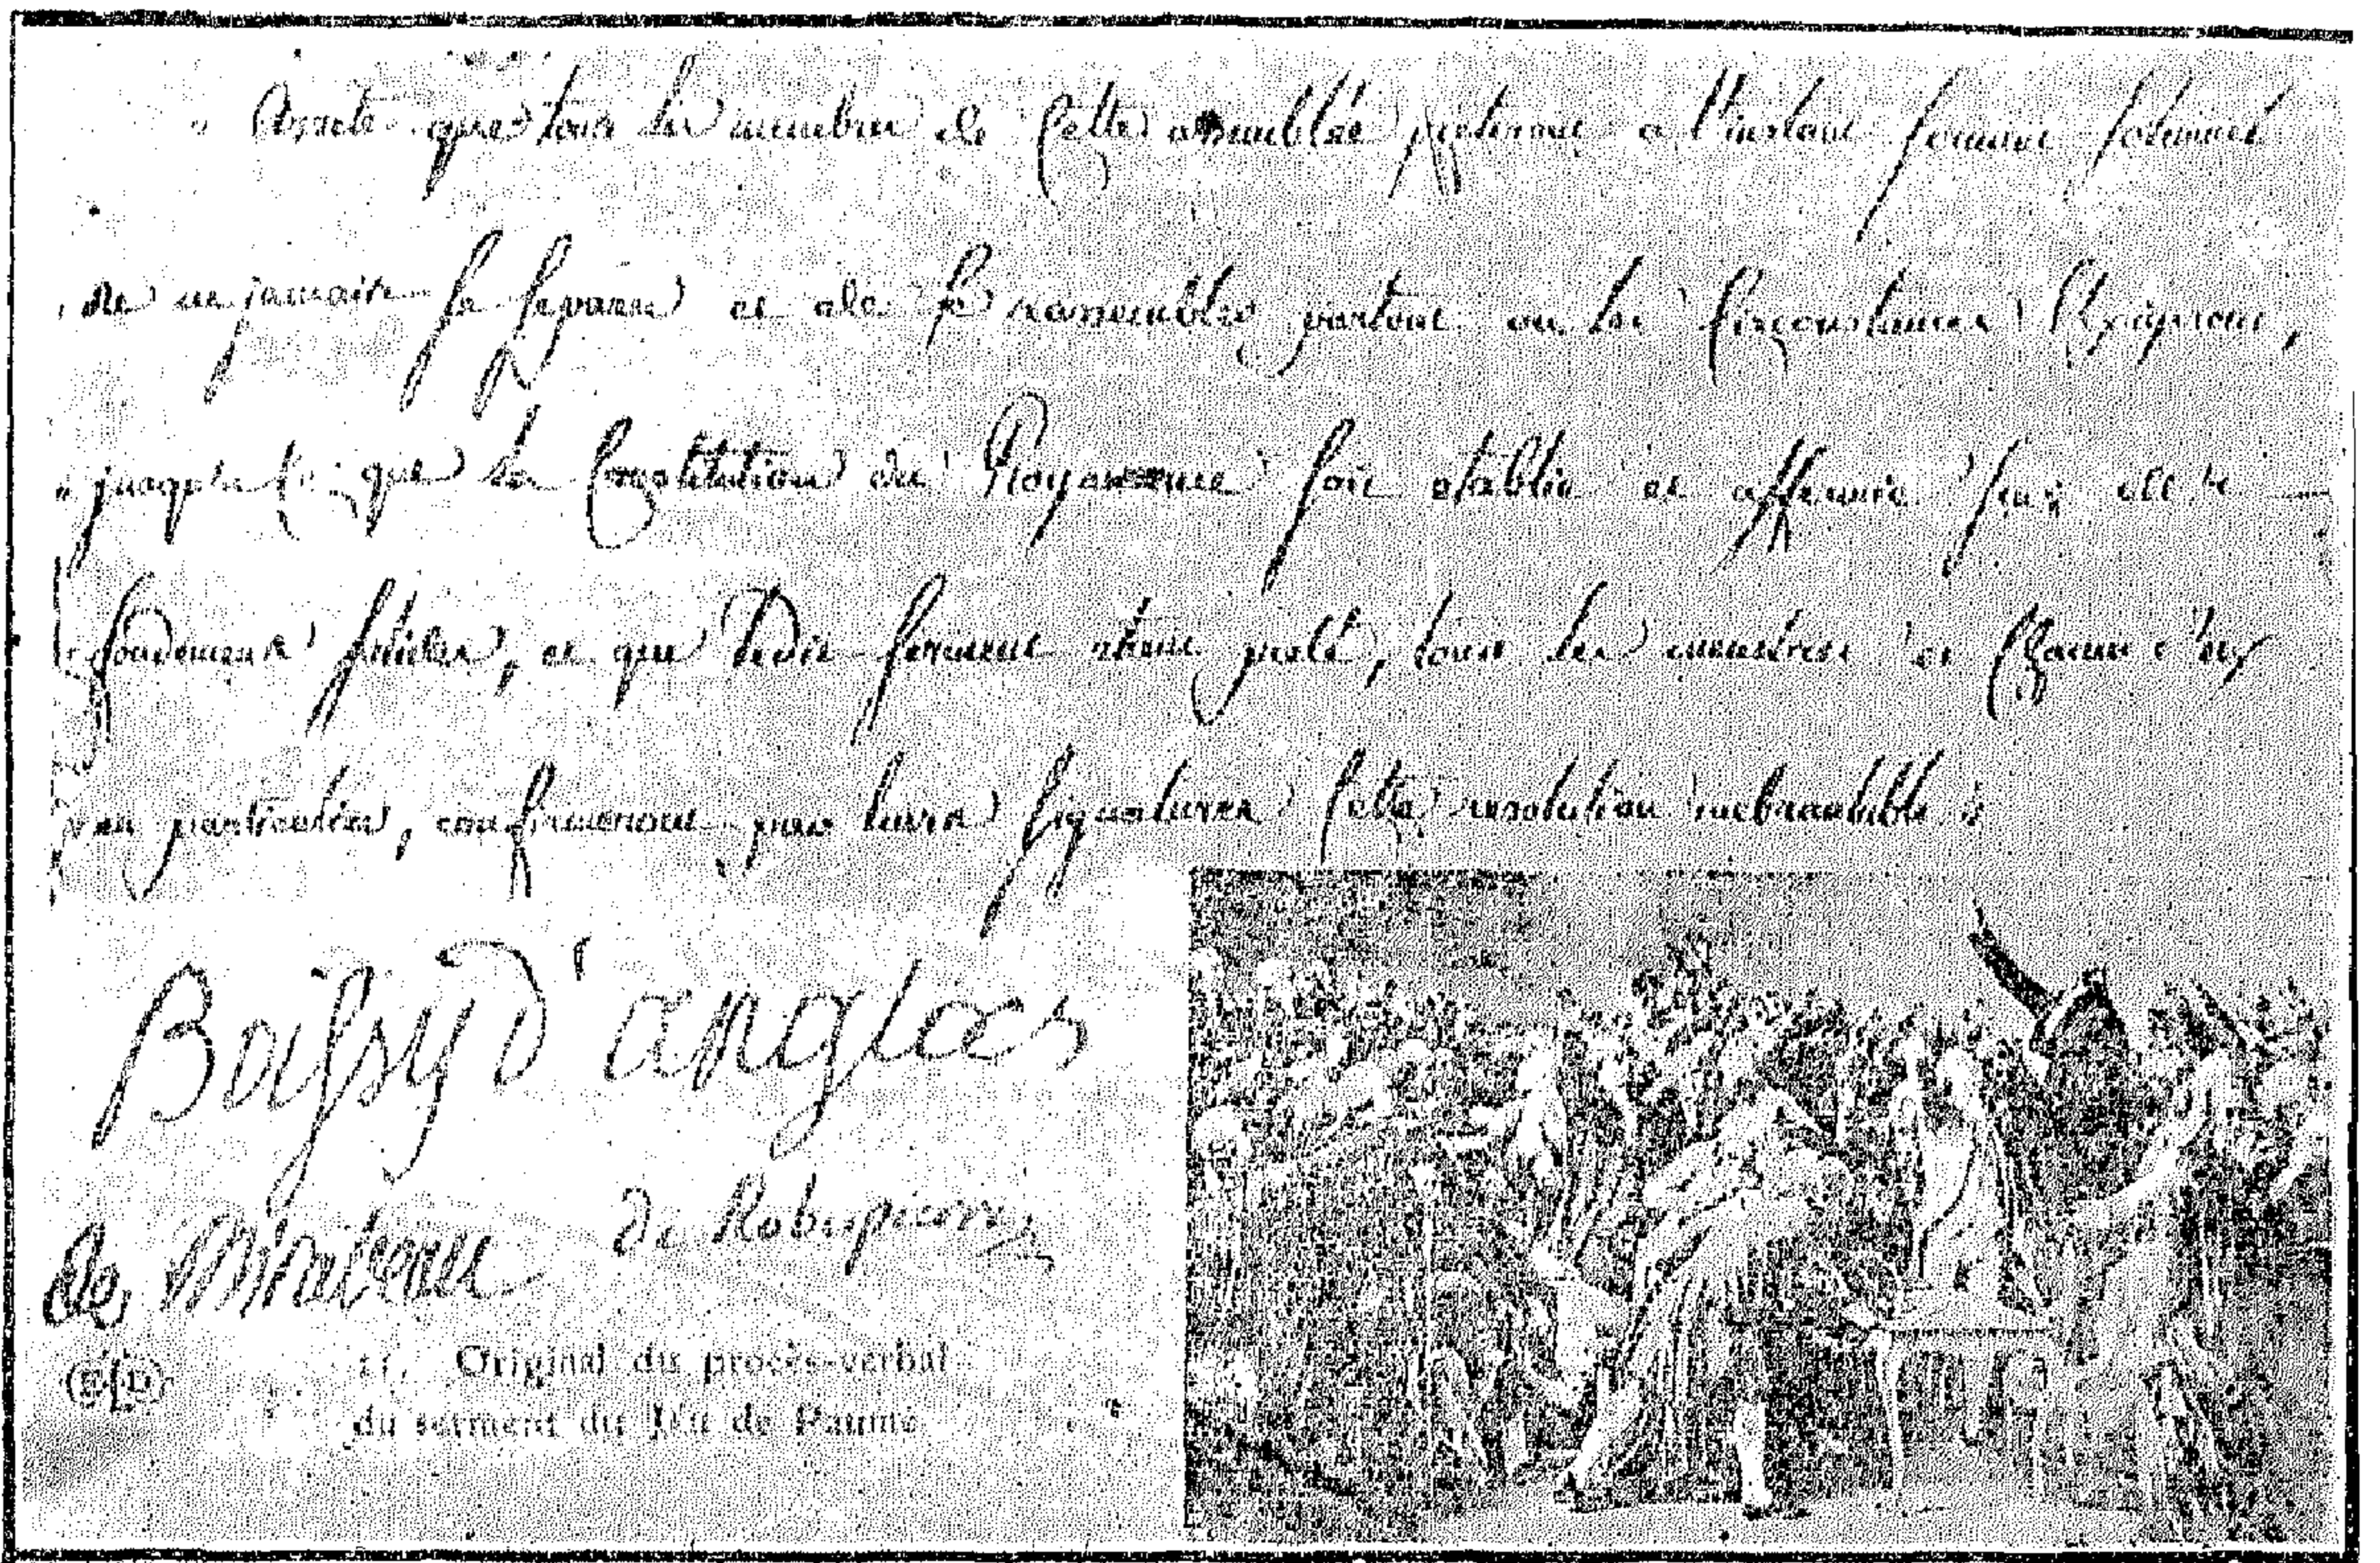 " Arrete que tous les membres de Cette assemblée preteront a l'instant serment solemnel
" de ne jamais se separer et de se rassembler partout ou les Circonstances l'Exigeront,
" jusqu'a Ce que la Constitution du Royaume soit etablie et affermie sur des
" fondemens solides, et que Ledit serment etant preté, tous les membres et Chacun d'eux
" en particulier, confirmeront par leurs signatures Cette resolution inebranlable "
Boissy d'anglas
de Robespierre
de Mirabeau
Original du procès-verbal
du serment du Jeu de Paume